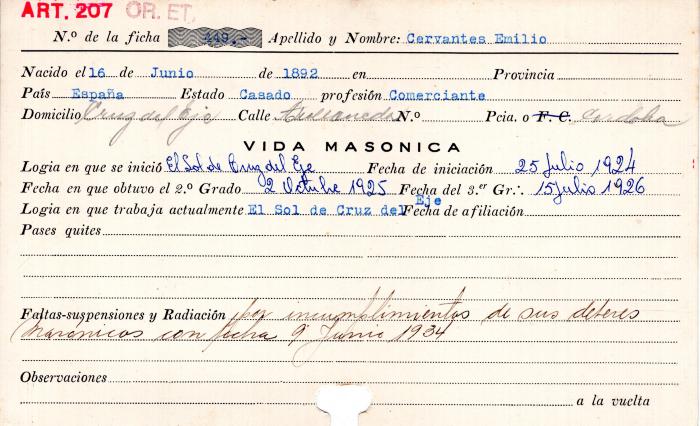 ART. 207 OR. ET.
N.º de la ficha 449.- Apellido y Nombre: Cervantes Emilio
Nacido el 16 de Junio de 1892 en Provincia
País España Estado Casado profesión Comerciante
Domicilio Cruz del Eje Calle N.º Pcia. o F. C. Cordoba
VIDA MASONICA
Logia en que se inició El Sol de Cruz del Eje Fecha de iniciación 25 Julio 1924
Fecha en que obtuvo el 2.º Grado 2 Octubre 1925 Fecha del 3.er Gr∴ 15 Julio 1926
Logia en que trabaja actualmente El Sol de Cruz del Eje Fecha de afiliación
Pases quites
Faltas-suspensiones y Radiación por incumplimientos de sus deberes
masónicos con fecha 9 Junio 1934
Observaciones
a la vuelta